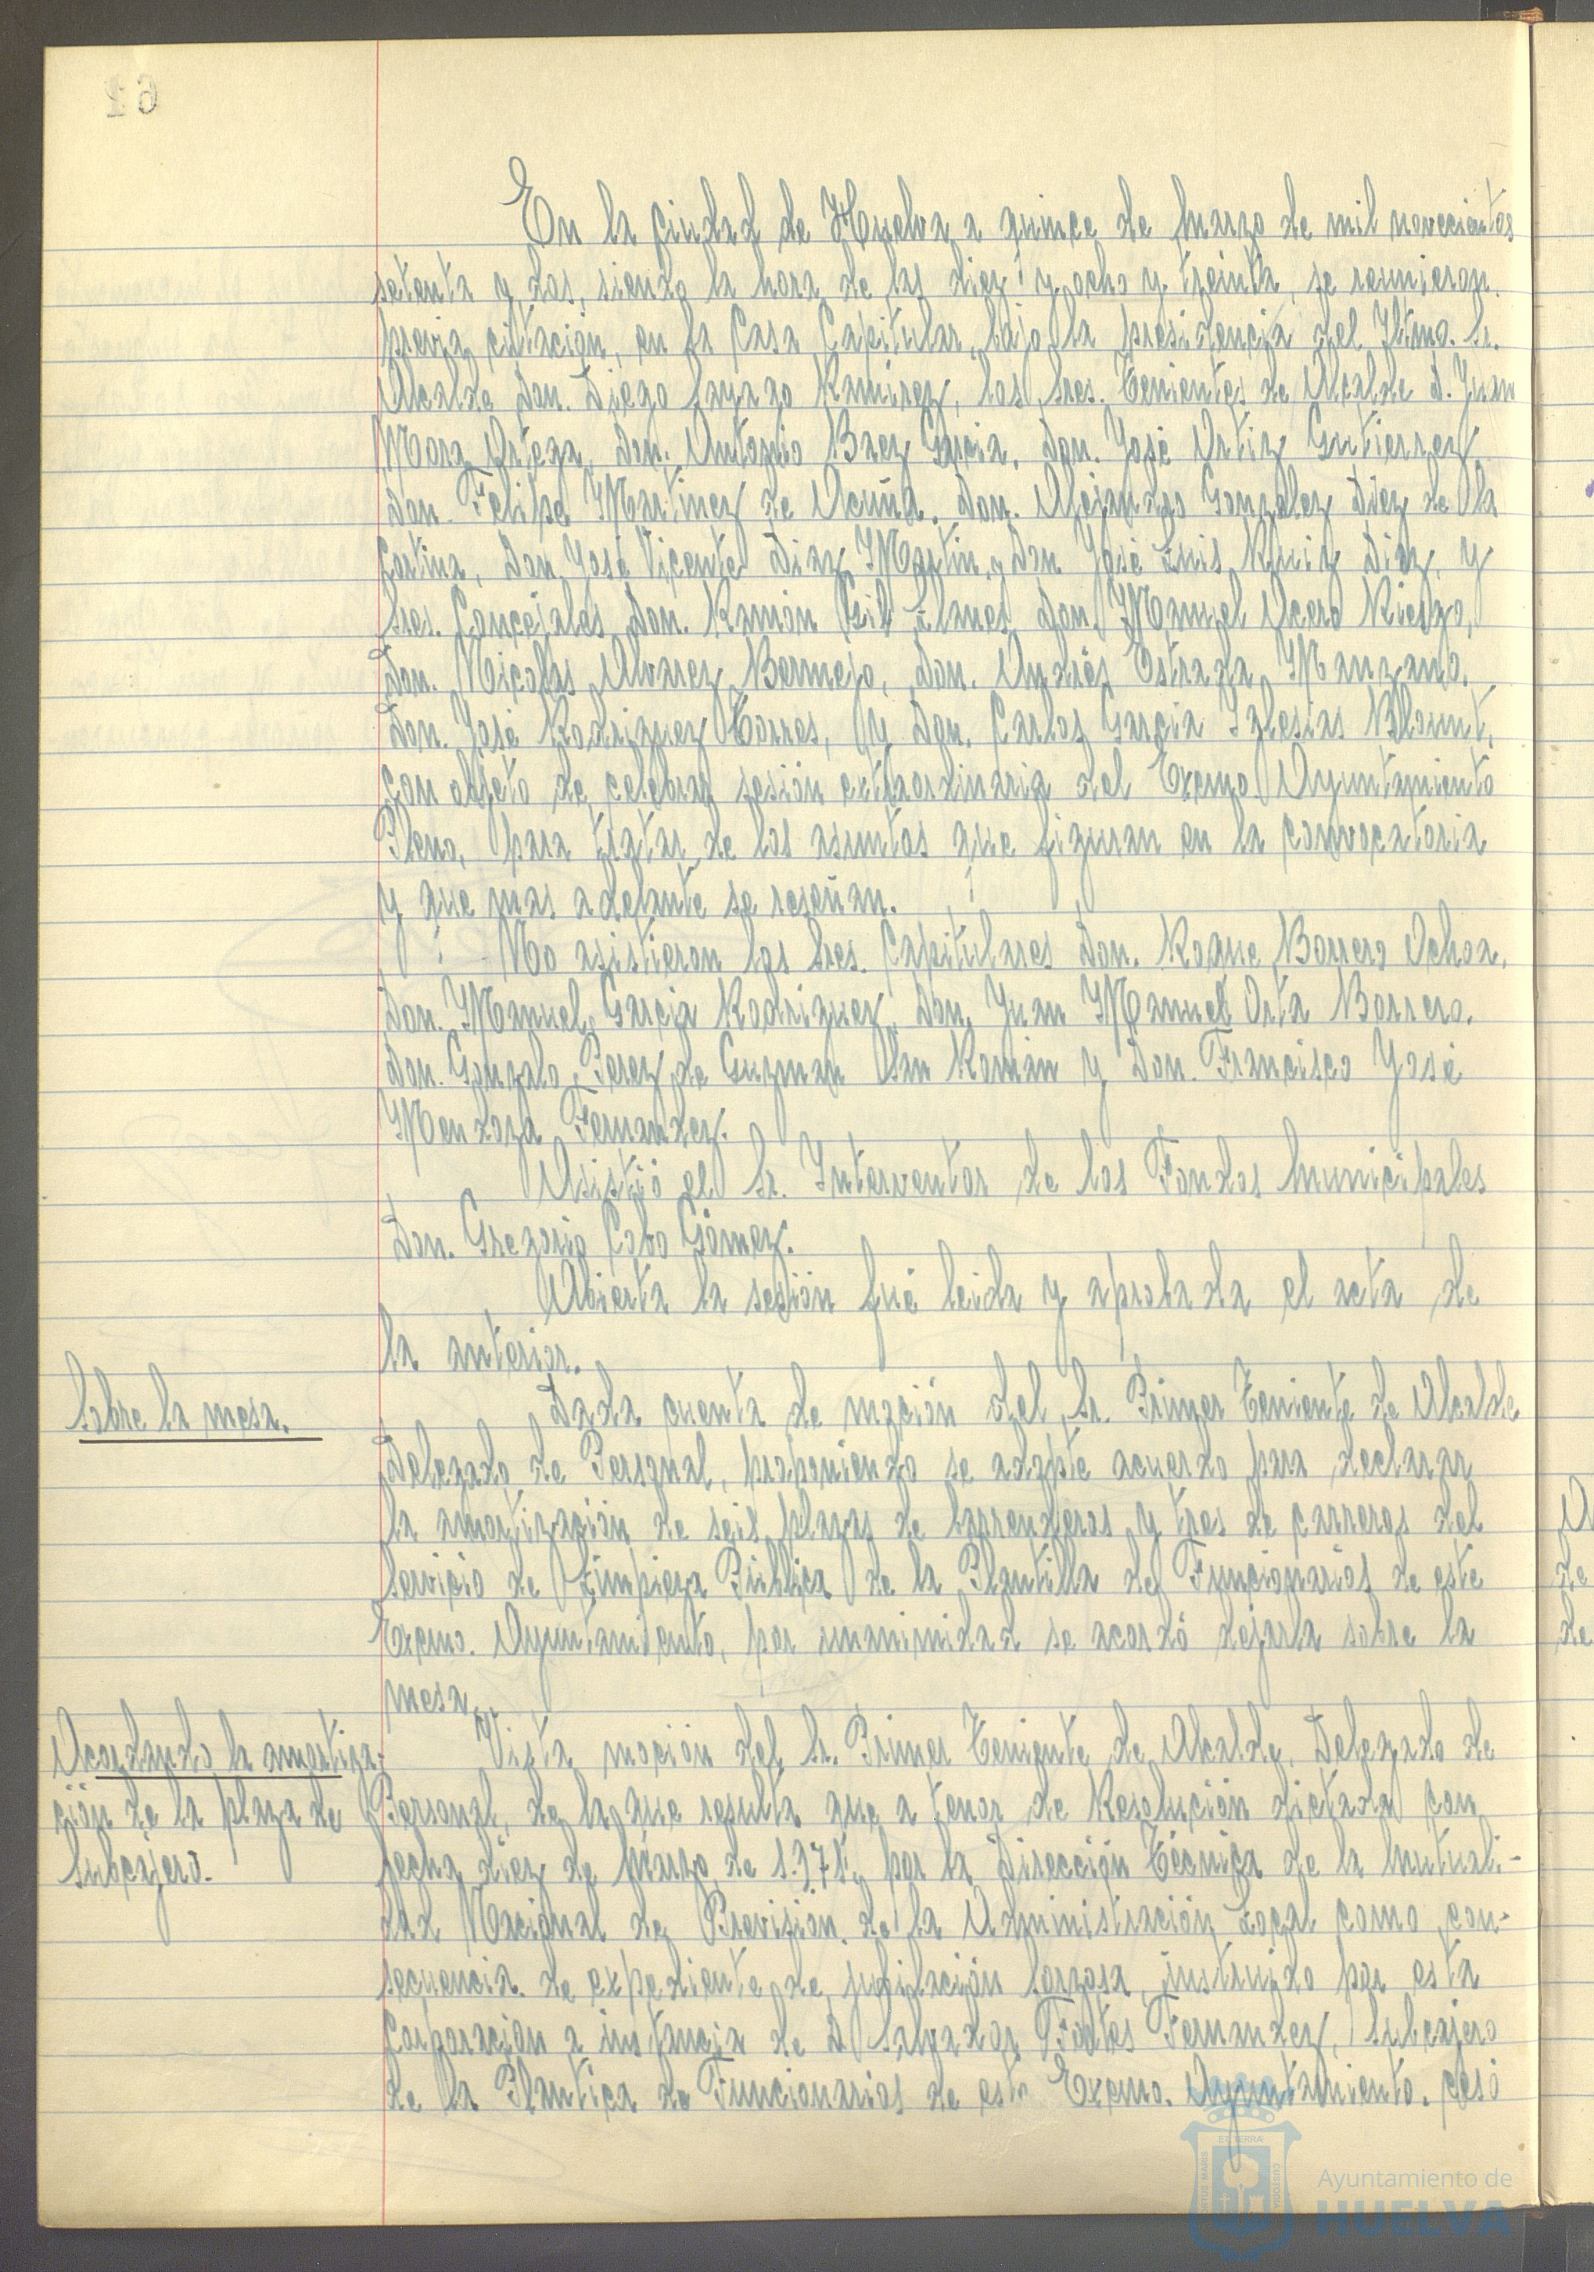 62
En la Ciudad de Huelva a quince de Marzo de mil novecientos
setenta y dos, siendo la hora de las diez y ocho y treinta, se reunieron
previa citación, en la Casa Capitular, bajo la presidencia del Iltmo. Sr.
Alcalde Don. Diego Sayago Ramirez, los Sres. Tenientes de Alcalde D. Juan
Mora Ortega, Don. Antonio Baez Garcia, Don. José Ortiz Gutierrez
Don. Felipe Martinez de Acuña, Don. Alejandro Gonzalez Diez de la
Cortina, Don José Vicente Diaz Martin, y Don José Luis Ruiz Diaz, y
Sres. Concejales Don. Ramón Gil Llanes, Don. Manuel Acero Riesgo,
Don. Nicolas Alvarez Bermejo, Don. Andrés Estrada Manzano,
Don. José Rodriguez Torres, y Don. Carlos Garcia Iglesias Blount,
con objeto de celebrar sesión extraordinaria del Excmo. Ayuntamiento
Pleno, para tratar de los asuntos que figuran en la convocatoria
y que mas adelante se reseñan.
No asistieron los Sres. Capitulares Don. Roque Borrero Ochoa,
Don. Manuel Garcia Rodriguez, Don. Juan Manuel Orta Borrero,
Don. Gonzalo Perez de Guzman San Román y Don. Francisco José
Mendoza Fernandez.
Asistió el Sr. Interventor de los Fondos Municipales
Don. Gregorio Cobo Gómez.
Abierta la sesión fué leida y aprobada el acta de
la anterior.
Sobre la mesa.
Dada cuenta de moción del Sr. Primer Teniente de Alcalde
Delegado de Personal, proponiendo se adopte acuerdo para declarar
la amortización de seis plazas de barrenderos y tres de carreros del
Servicio de Limpieza Pública de la Plantilla de Funcionarios de este
Excmo. Ayuntamiento, por unanimidad se acordó dejarla sobre la
mesa.
Acordando la amortiza-
ción de la plaza de
Subcajero.
Vista moción del Sr. Primer Teniente de Alcalde, Delegado de
Personal, de la que resulta que a tenor de Resolución dictada con
fecha diez de Marzo de 1.971, por la Dirección Técnica de la Mutuali-
dad Nacional de Previsión de la Administración Local como con-
secuencia de expediente de jubilación forzosa, instruido por esta
Corporación a instancia de D Salvador Fortes Fernandez, Subcajero
de la Plantiça de Funcionarios de este Excmo. Ayuntamiento, cesó
Ayuntamiento de
HUELVA